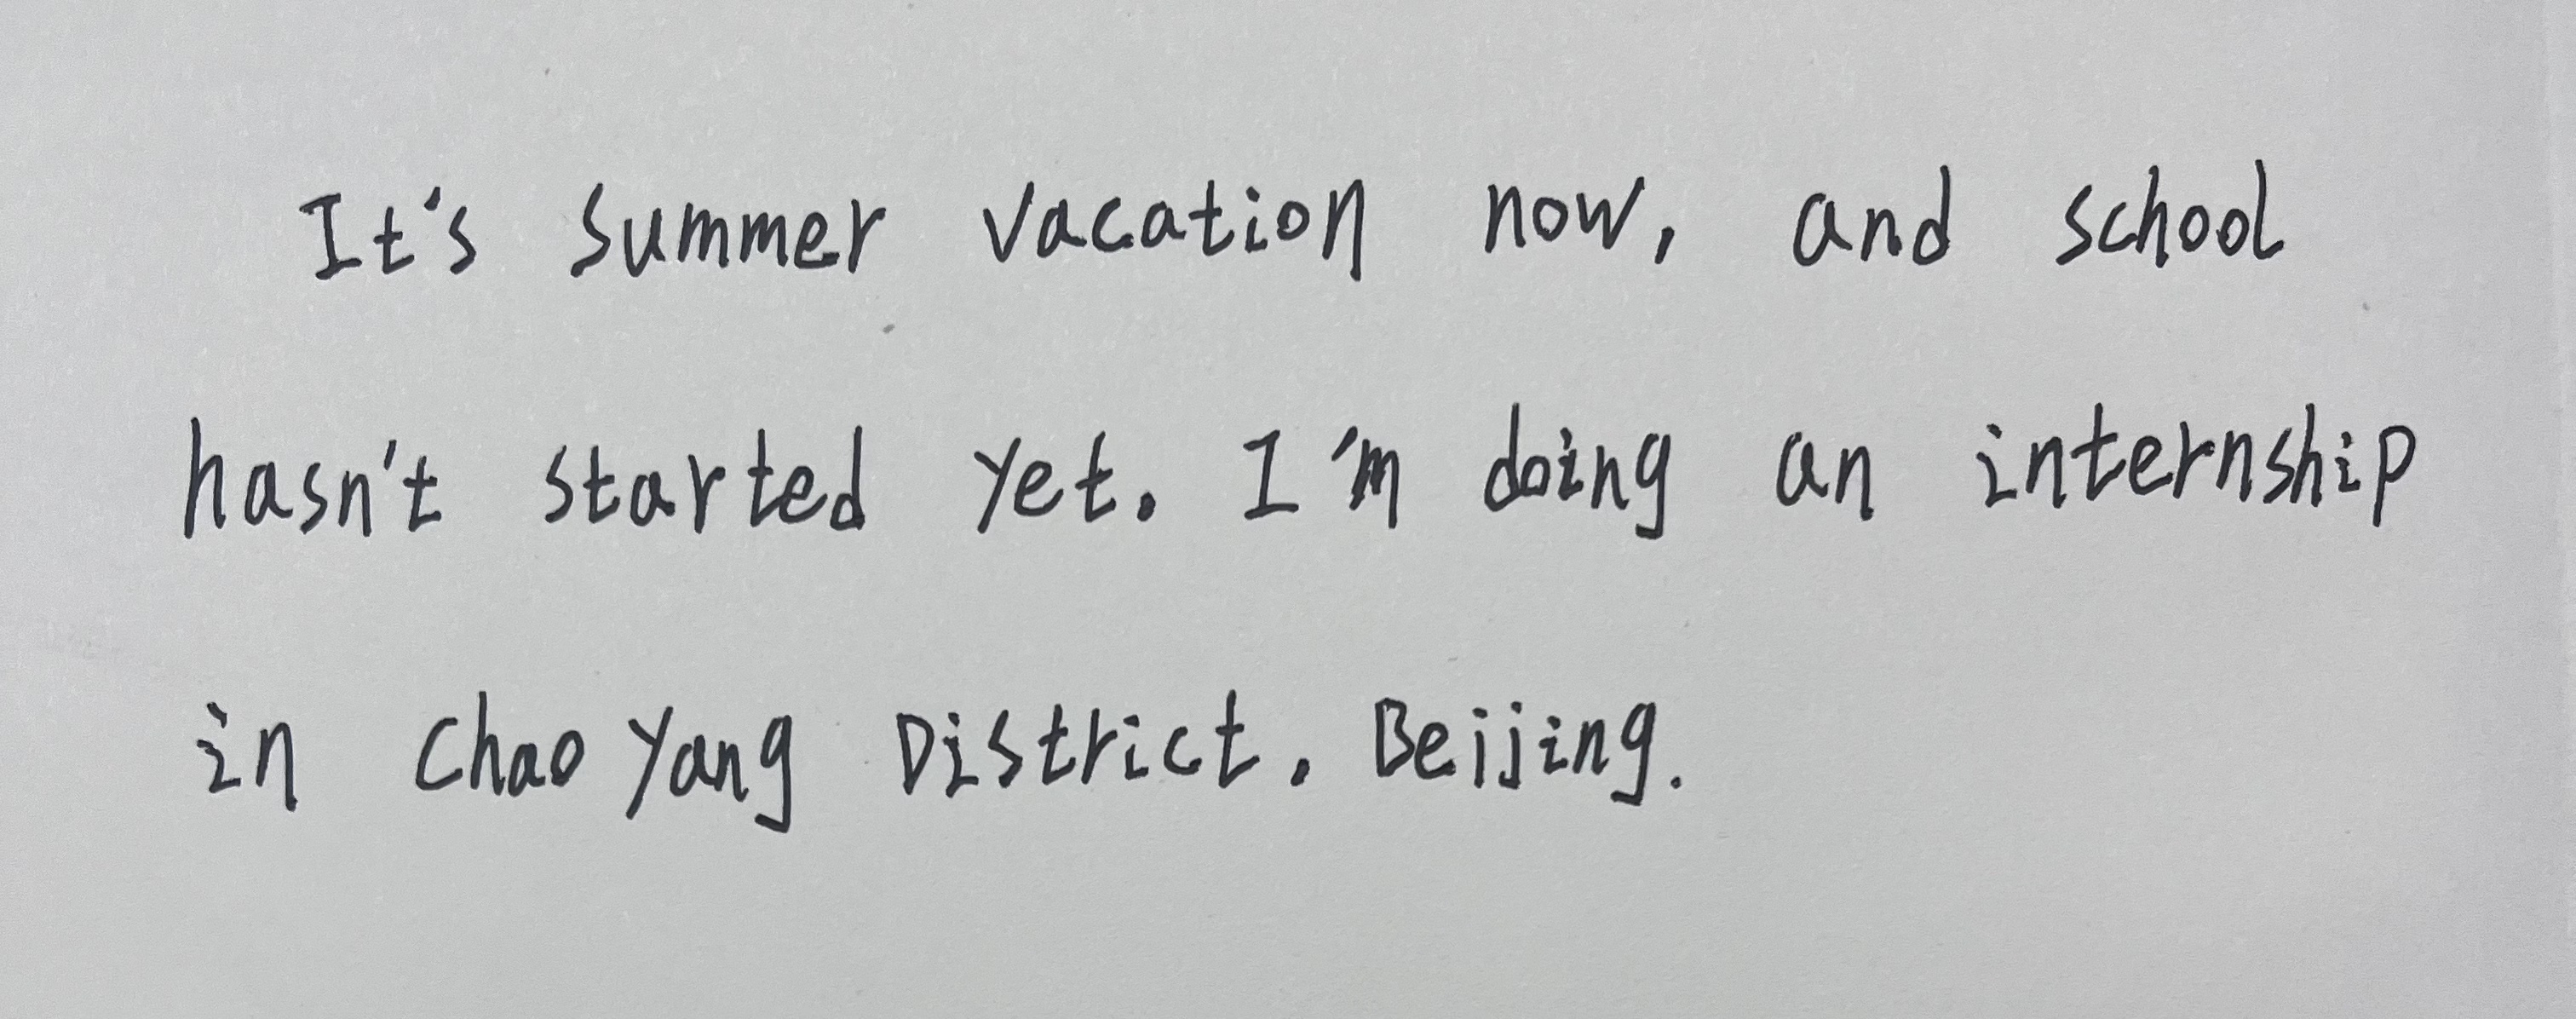 It's summer vacation now, and school
hasn't started yet. I'm doing an internship
in Chao Yang District, Beijing.